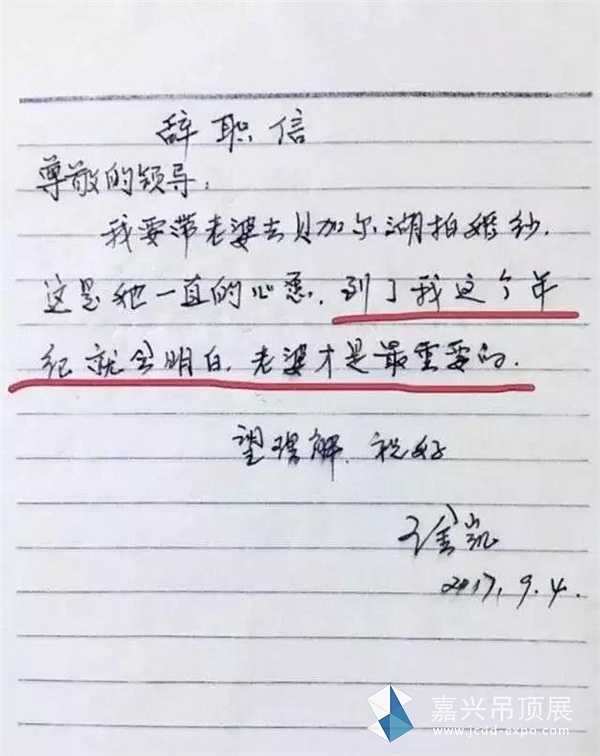 辞职信
尊敬的领导:
我要带老婆去贝加尔湖拍婚纱.
这是她一直的心愿.到了我这个年
纪就会明白.老婆才是最重要的.
望理解.祝好
2017.9.4.
嘉兴吊顶展
www.jcdd-expo.com